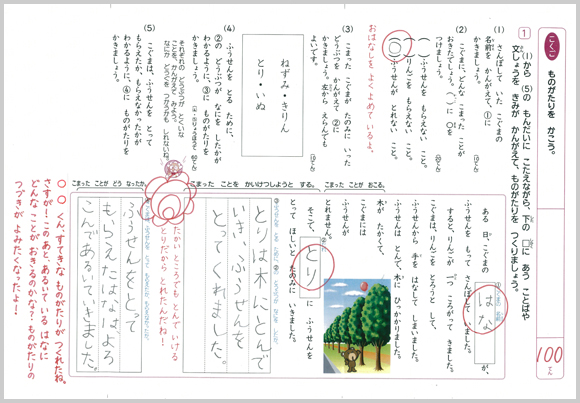 こくご
ものがたりを かこう。
1
(1)から (5)の もんだいに こたえながら、下の □に あう ことばや
文しょうを きみが かんがえて、ものがたりを つくりましょう。
(1) さんぽして いた こぐまの
名前を かんがえて、①に
かきましょう。
(2) こぐまに どんな こまった ことが
おきたでしょう。( )に ○を
つけましょう。
( )ふうせんを もらえない こと。
( )りんごを もらえない こと。
(○)ふうせんが とれない こと。
おはなしを よくよめて いるよ。
(3) こまった こぐまが たのみに いった
どうぶつを かんがえて ②に
かきましょう。左から えらんでも
よいです。
ねずみ・きりん
とり・いぬ
(4) ふうせんを とる ために、
②の どうぶつが なにを したかが
わかるように、③に ものがたりを
かきましょう。
(5) こぐまは、ふうせんを とって
もらえたか、もらえなかったかが
わかるように、④に ものがたりを
かきましょう。
100てん
こまった ことが おこる。
ある 日、こぐまの
はな
が、
ふうせんを もって さんぽして いました。
すると、りんごが 一つ ころがって きました。
こぐまは、りんごを とろうと して、
ふうせんから 手を はなして しまいました。
ふうせんは とんで、木に ひっかかりました。
木が たかくて、
こぐまには
ふうせんが
とれません。
そこで、
とり
に ふうせんを
とって ほしいと たのみに いきました。
こまった ことを かいけつしようと する。
とりは木にとんで
いき、ふうせんを
とってくれました。
たかい ところでも とんで いける
とりだから とれたんだね!
こまった ことが どう なったか。
ふうせんをとって
もらえたはなは、よろ
こんであるいていきました。
○○くん、すてきな ものがたりが つくれたね。
さすが!このあと、あるいて いる はなに
どんな ことが おきるのかな? ものがたりの
つづきが よみたくなったよ!